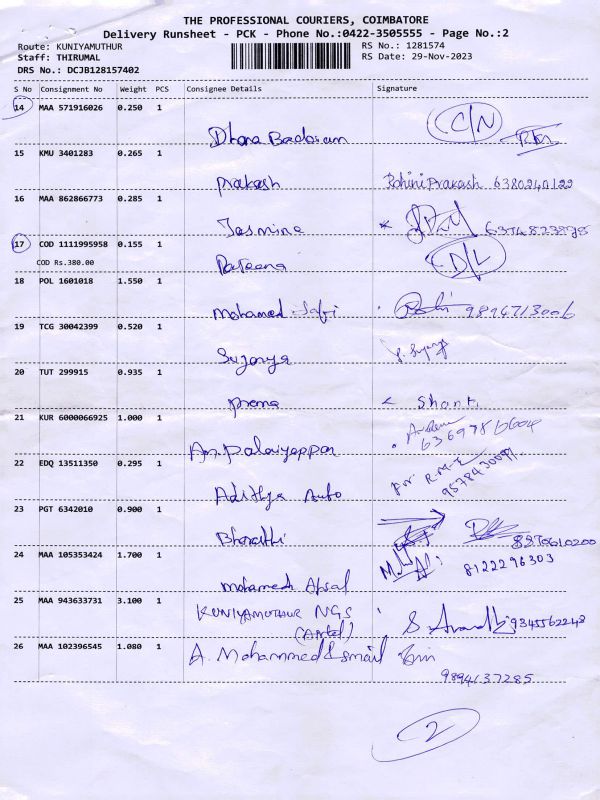 THE PROFESSIONAL COURIERS, COIMBATORE
Delivery Runsheet - PCK - Phone No.:0422-3505555 - Page No.:2
Route: KUNIYAMUTHUR RS No.: 1281574
Staff: THIRUMAL RS Date: 29-Nov-2023
DRS No.: DCJB128157402
S No Consignment No Weight PCS Consignee Details Signature
14 MAA 571916026 0.250 1
C/N
15 KMU 3401283 0.265 1
Prakash RohiniPrakash 6380240122
16 MAA 862866773 0.285 1
Jasmine
17 COD 1111995958 0.155 1
COD Rs.380.00 D/L
18 POL 1601018 1.550 1
Mohamed 9894713006
19 TCG 30042399 0.520 1
20 TUT 299915 0.935 1
Prema Shanti
21 KUR 6000066925 1.000 1
An. Palaiyappan
22 EDQ 13511350 0.295 1
Adithya Auto
23 PGT 6342010 0.900 1
Bharathi
24 MAA 105353424 1.700 1 8122296303
Mohamed Afsal
25 MAA 943633731 3.100 1
KUNIYAMUTHUR NGS 9345562248
(Airtel)
26 MAA 102396545 1.080 1
A. Mohammed Ismail
9894137285
2